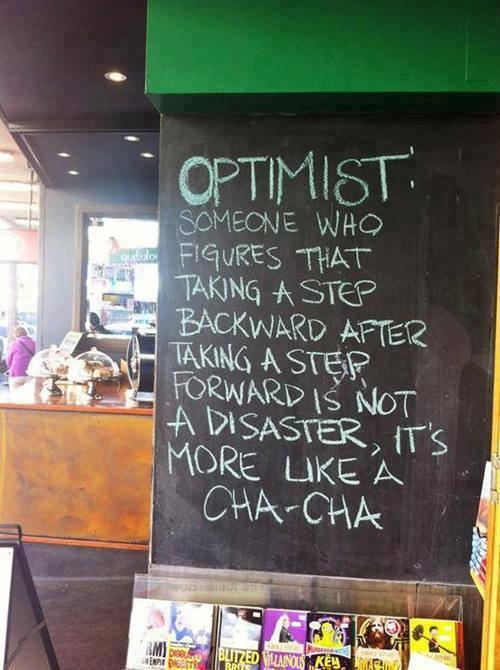 OPTIMIST:
SOMEONE WHO
FIGURES THAT
TAKING A STEP
BACKWARD AFTER
TAKING A STEP
FORWARD IS NOT
A DISASTER, IT'S
MORE LIKE A
CHA-CHA
BLITZED
BRITS
VILLAINOUS